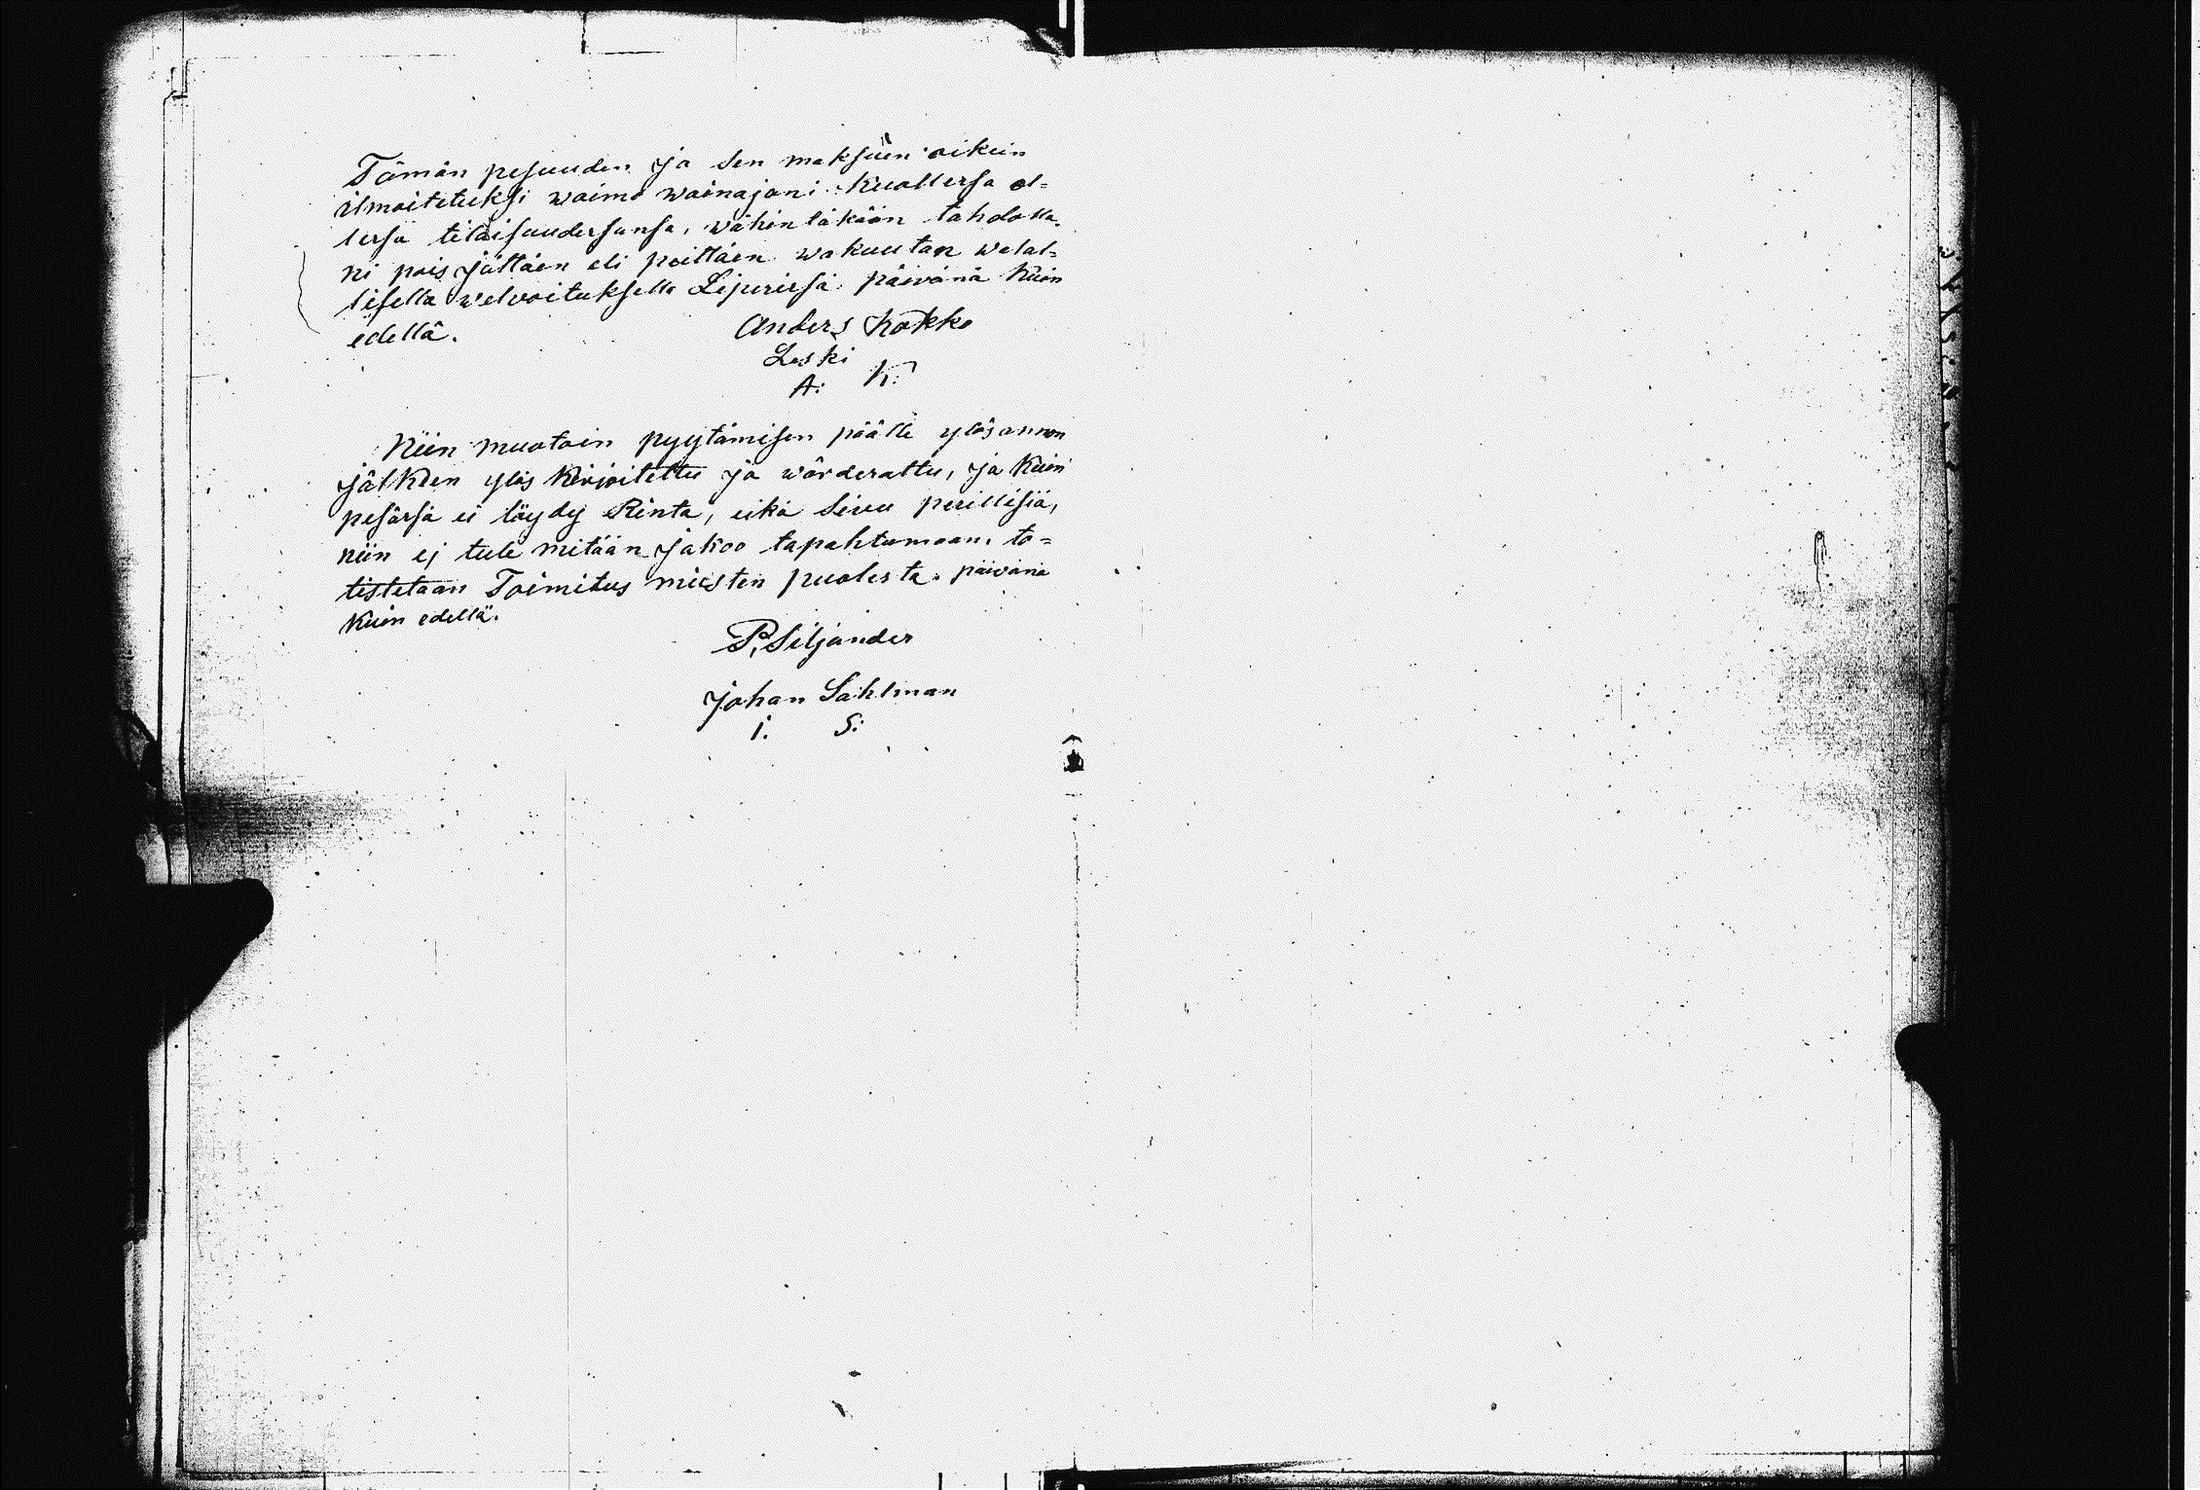 Tämän pesuuden ja sen maksuen oikein
ilmoitetuksi waimo wainajani kuollessa ol-
lessa tilaisuudessansa, wähintäkään tahdolla-
ni pois jättäen eli peittäen wakuutan walal-
lisella velvoituksella Liperissä päivänä kuin
edellä.
Anders Kokko
Leski
A: K:
Niin muotoin pyytämisen päälle ylösannon
jälkeen ylös kirjoitettu ja wärderattu, ja kuin
pesässä ei löydy Rinta, eikä Sivu perillisiä,
niin ej tule mitään jakoo tapahtumaan. to-
tistetaan Toimitus miesten puolesta. päivänä
kuin edellä.
P. Siljander
Johan Sahlman
I. S: